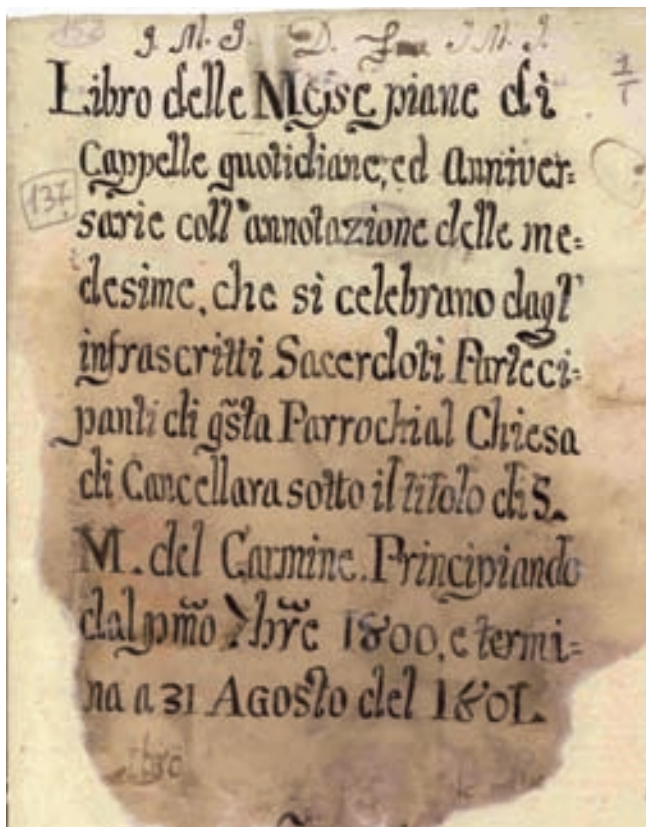 152
J. M. J. D. J. M. J.
1/1
Libro delle Messe piane di
Cappelle quotidiane, ed Anniver=
137
sarie coll'annotazione delle me=
desime, che si celebrano dagl'
infrascritti Sacerdoti Parteci=
panti di q̃sta Parrochial Chiesa
di Cancellara sotto il titolo di S.
M. del Carmine. Principiando
dal pm̃o 7br̃e 1800, e termi=
na a 31 Agosto del 1801.